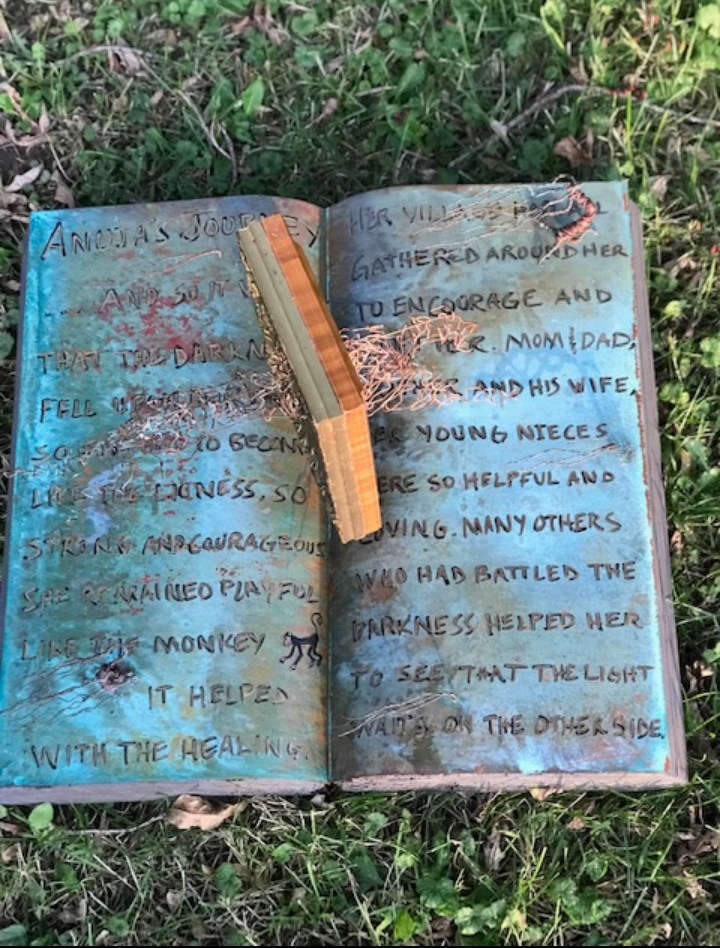 ANUJA'S JOURNEY
.... AND SO IT
THAT THE DARKN
FELL UPON
SO TO BECOME
LIKE THE LIONESS, SO
STRONG AND COURAGEOUS
SHE REMAINED PLAYFUL
LIKE THE MONKEY
IT HELPED
WITH THE HEALING.
HER VILLAGE
GATHERED AROUND HER
TO ENCOURAGE AND
HER. MOM & DAD,
AND HIS WIFE,
HER YOUNG NIECES
WERE SO HELPFUL AND
LOVING. MANY OTHERS
WHO HAD BATTLED THE
DARKNESS HELPED HER
TO SEE THAT THE LIGHT
WAITS ON THE OTHER SIDE.